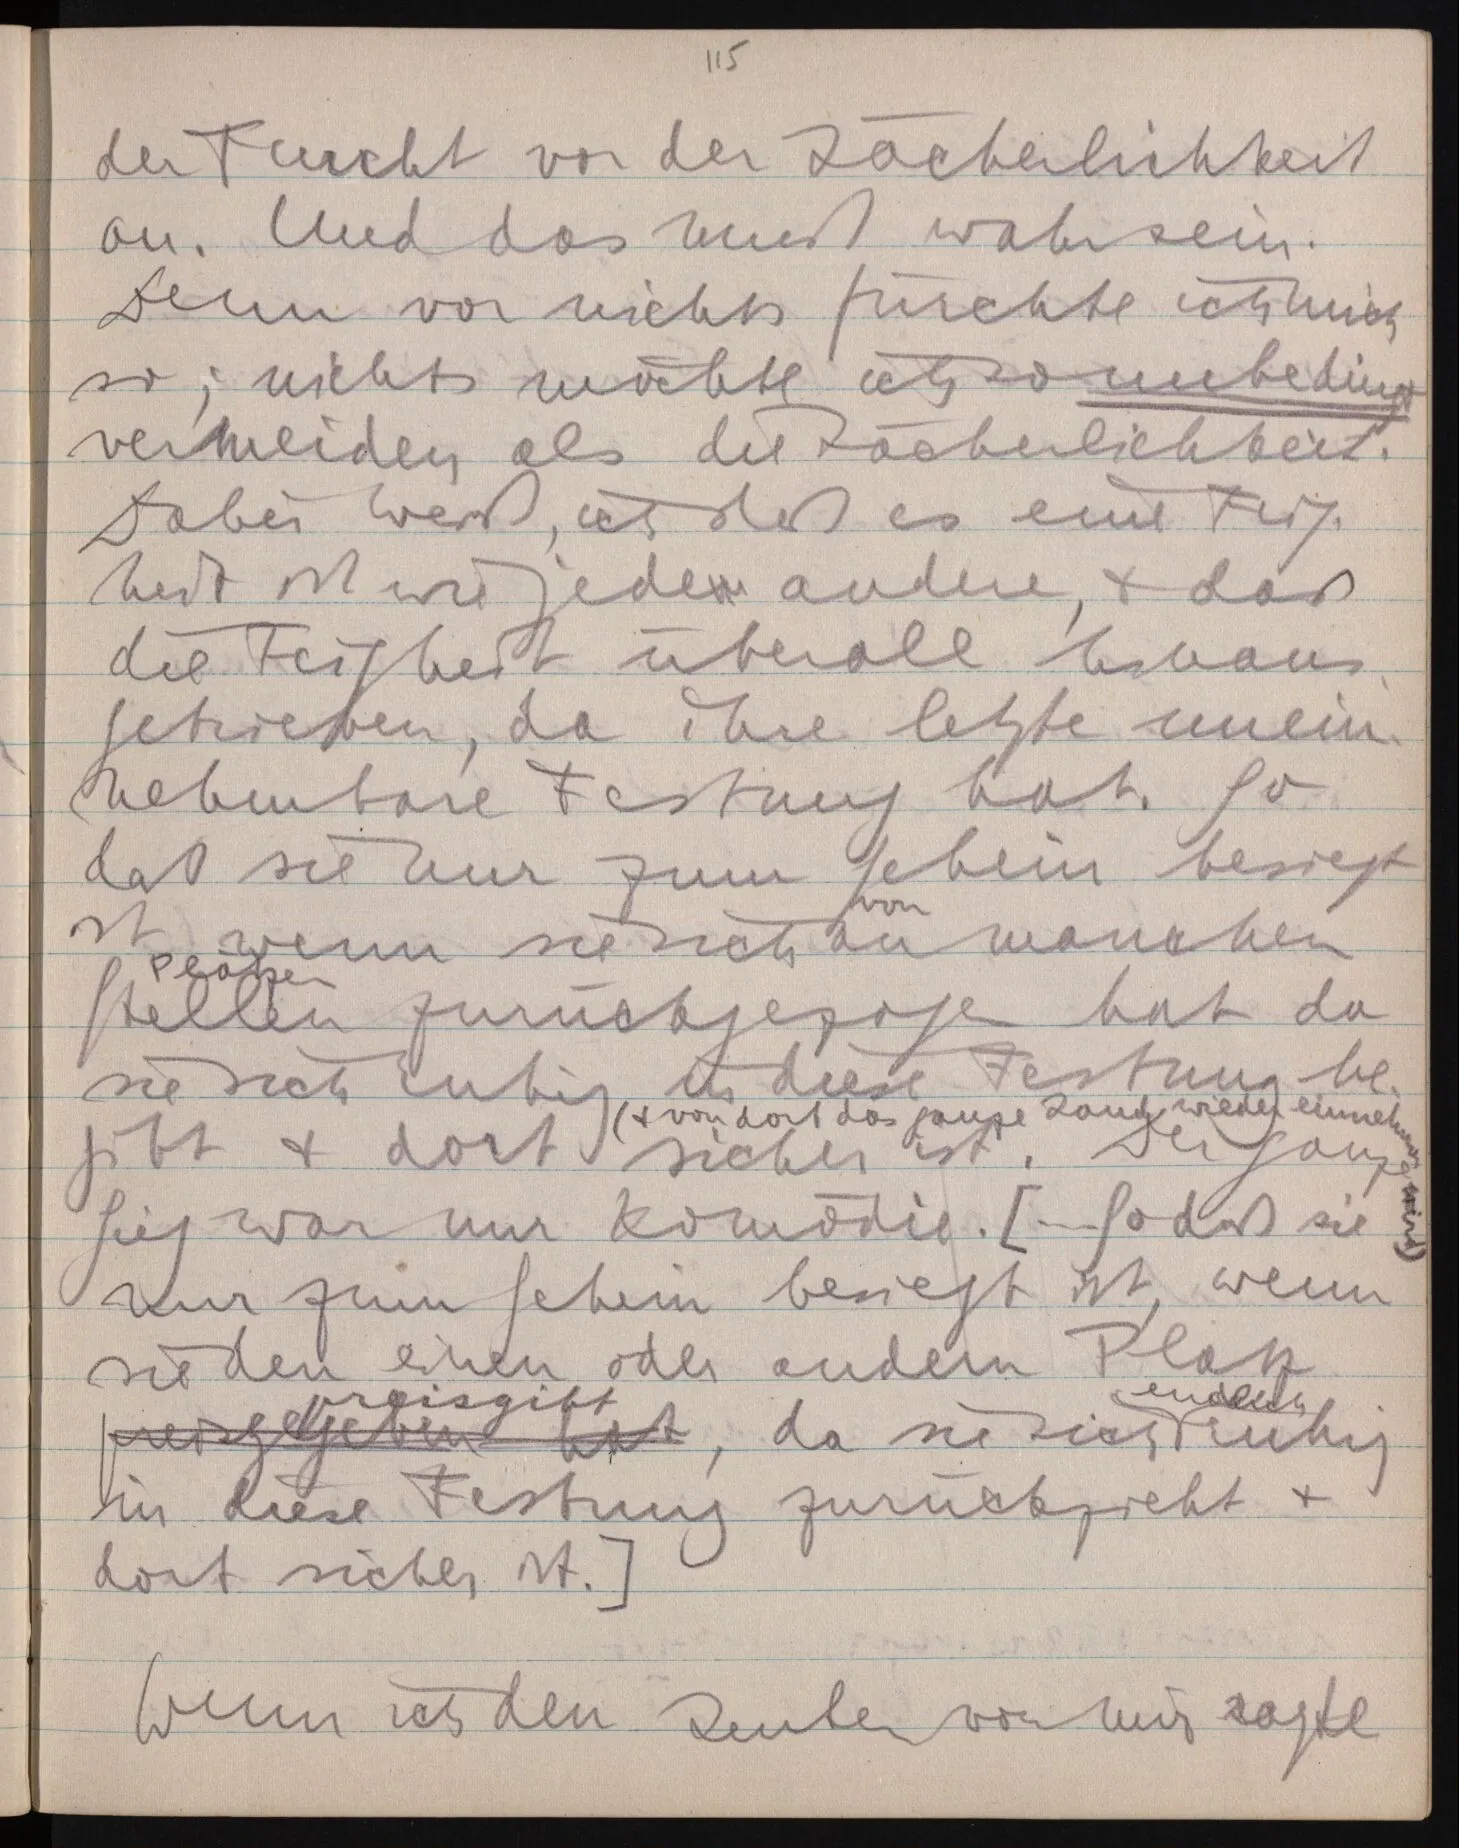 115
der Furcht vor der Lächerlichkeit
an. Und das muß wahr sein.
Denn vor nichts fürchte ich mich
so; nichts möchte ich so unbedingt
vermeiden als die Lächerlichkeit.
Dabei weiß, ich daß es eine Feig-
heit ist wie jede andere, & daß
die Feigheit überall heraus-
getrieben, da ihre letzte unein-
nehmbare Festung hat. So
daß sie nur zum Schein besiegt
von
ist wenn sie sich an manchen
Plätzen
Stellen zurückgezogen hat da
sie sich ruhig in diese Festung be-
(& von dort das ganze Land wieder einnehmen wird)
gibt & dort sicher ist. Der ganze
Sieg war nur Komödie. [... So daß sie
nur zum Schein besiegt ist, wenn
sie den einen oder andern Platz
preisgibt endlich
preisgegeben hat, da sie sich ruhig
in diese Festung zurückzieht &
dort sicher ist.]
Wenn ich den Leuten von mir sagte